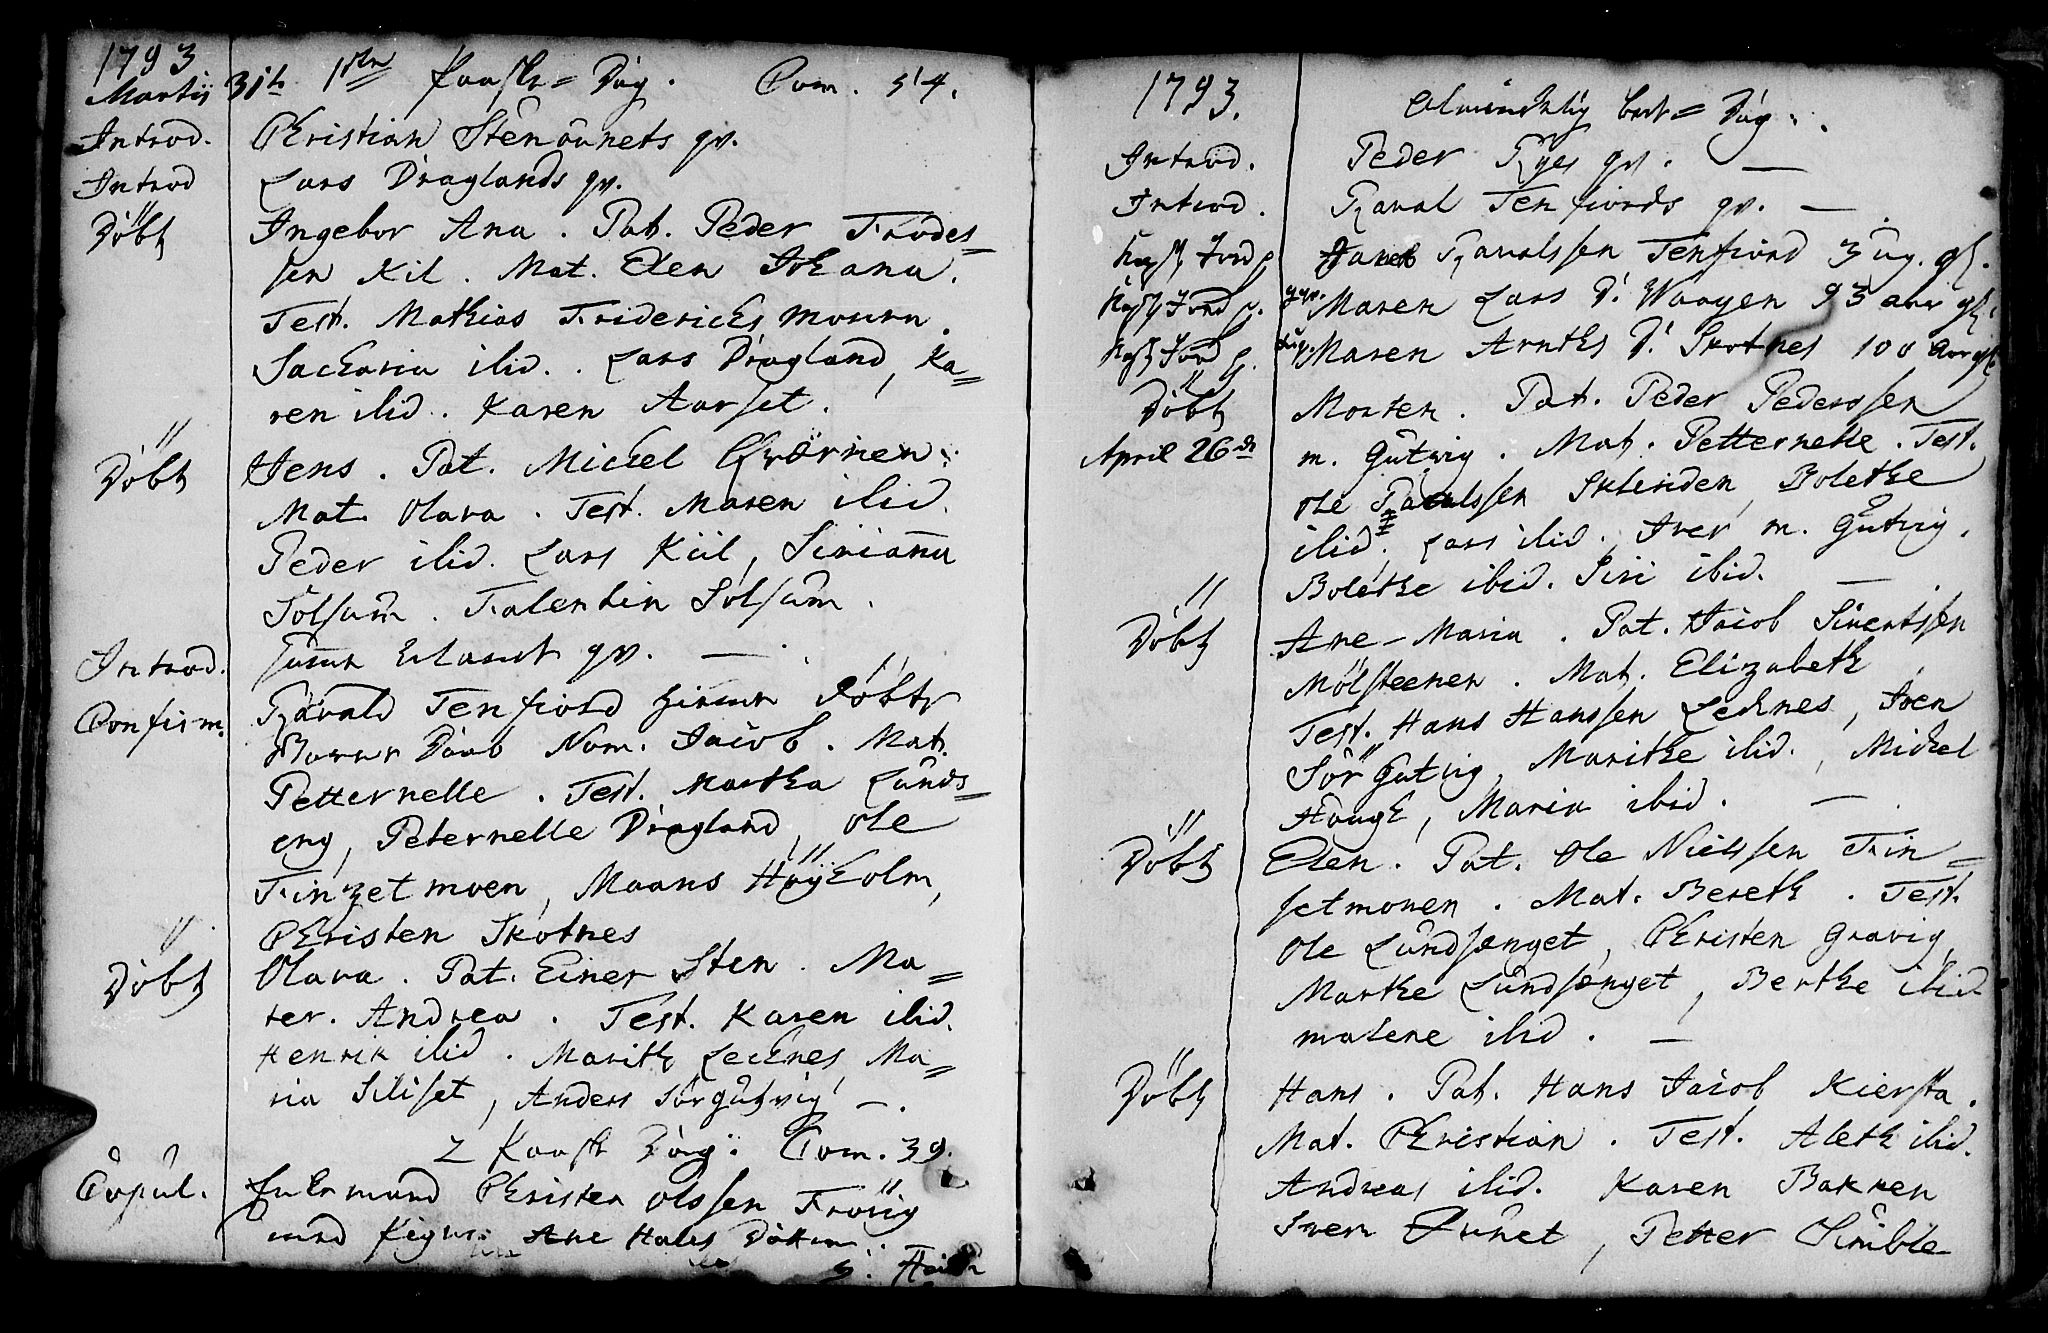 1793
Martij 31te 1ste Paaske= Dag. Com. 54.
Introd. Christian Stenaunets qv.
Introd Lars Draglands qv.
Döbt Ingebor Ana. Pat. Peder Frodes=
sen Kil. Mat. Elen Johana.
Test. Mathias Friderichs
Sacharia ibid. Lars Dragland, Ka=
ren ibid. Karen Aarset.
Döbt Jens. Pat. Michel Qværnen.
Mat. Olava. Test. Maren ibid.
Peder ibid. Lars Kiil, Siriana
Solsum. Falentin Solsum.
Introd. qv. —
Confirm. Tharald Tenfiord Döbte
Barn Nom. Jacob. Mat.
Petternelle. Test. Martha Lunds=
eng, Peternelle Dragland, Ole
Finzetmoen, Maans Höÿholm,
Christen Skotnes
Döbt Olava. Pat. Einer Sten. Ma=
ter. Andrea. Test. Karen ibid.
Henrik ibid. Marith Lechnes Ma=
ria Sliset, Anders Sörgutvig —.
2 Paaske Dag: Com. 39.
Copul. Christen Olssen Frövig
med Pigen Ane Hans Dotter
1793.
Almindelig bede= Dag.
Introd. Peder Ryes qv. —
Introd. Tharal Tenfiords qv. —
Kast Jord p. Jacob Tharalssen Tenfiord 3 ug. gl.
Kast Jord p. Maren Lars D. Waagen 93 aar gl.
Kast Jord p. Maren Arnths D. Skotnes 100 aar gl.
Döbt Morten. Pat. Peder Pederssen
April 26de m. Gutvig. Mat. Petternelle. Test.
Ole Tharalssen Sklinden, Bolethe
ibid, Lars ibid. Iver m. Gutvig.
Bolethe ibid. Siri ibid. —
Döbt Ane-Maria. Pat. Jacob Siuertssen
Mölsteenen. Mat. Elizabeth
Test. Hans Hanssen Lechnes, Iven
Sör Gutvig, Marithe ibid., Michel
Hough, Maria ibid. —
Döbt Elen. Pat. Ole Nielssen Fin=
setmonen. Mat. Bereth. Test.
Ole Lundsenget, Christen Gravig,
Marthe Lundsenget, Berthe ibid
malene ibid. —
Döbt Hans. Pat. Hans Jacob Kiersta.
Mat. Christian. Test. Aleth ibid.
Andreas ibid. Karen Bakken
Sven Aunet, Petter Simble